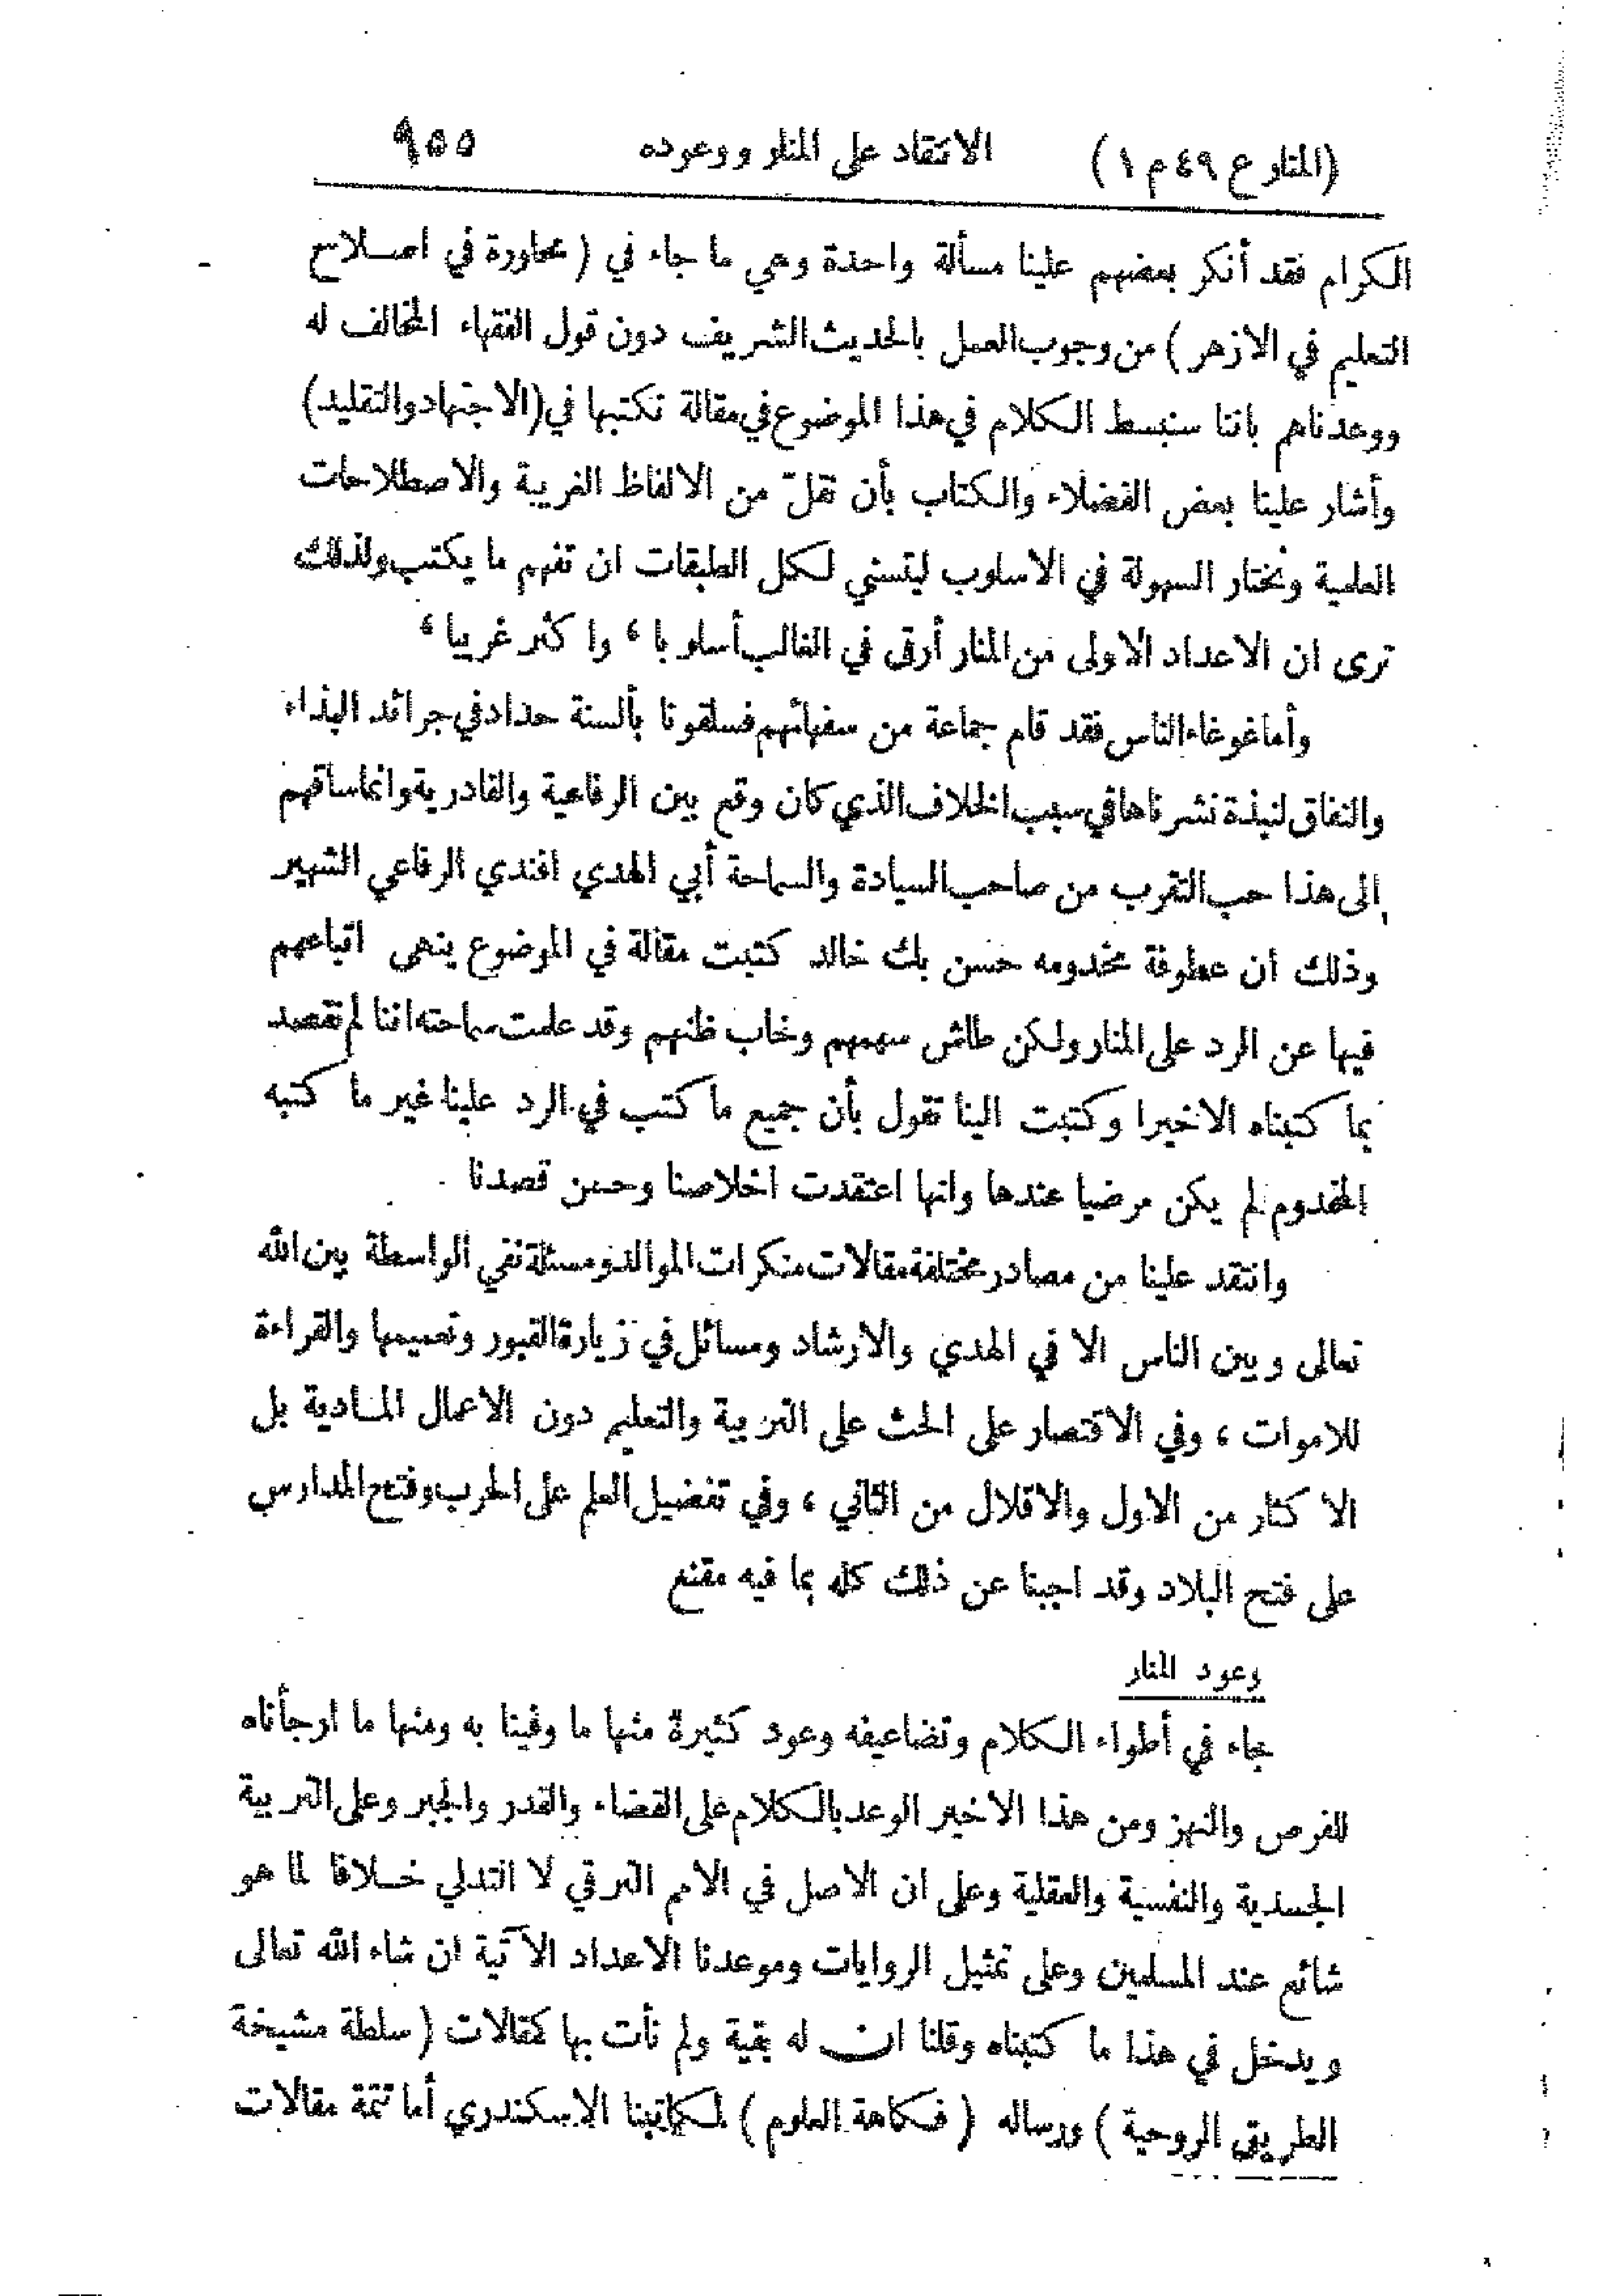 (المنار ع ٤٩ م ١) الانتقاد على المنار ووعوده ٩٥٥
الكرام فقد أنكر بعضهم علينا مسألة واحدة وهي ما جاء في ( محاورة في اصلاح
التعليم في الازهر ) من وجوب العمل بالحديث الشريف دون قول الفقهاء المخالف له
ووعدناهم باننا سنبسط الكلام في هذا الموضوع في مقالة نكتبها في (الاجتهاد والتقليد)
وأشار علينا بعض الفضلاء والكتاب بأن نقلّ من الالفاظ الغريبة والاصطلاحات
العلمية ونختار السهولة في الاسلوب ليتسنى لكل الطبقات ان تفهم ما يكتب ولذلك
ترى ان الاعداد الاولى من المنار أرقى في الغالب أسلوبا ، واكثر غريبا ،
وأما غوغاء الناس فقد قام جماعة من سفهائهم فسلقونا بألسنة حداد في جرائد البذاء
والنفاق لنبذة نشرناها في سبب الخلاف الذي كان وقع بين الرفاعية والقادرية وانما ساقهم
إلى هذا حب التقرب من صاحب السيادة والسماحة أبي الهدي افندي الرفاعي الشهير
وذلك أن عطوفة مخدومه حسن بك خالد كتبت مقالة في الموضوع ينهى اتباعهم
فيها عن الرد على المنار ولكن طاش سهمهم وخاب ظنهم وقد علمت سماحته اننا لم نقصد
بما كتبناه الاخيرا وكتبت الينا تقول بأن جميع ما كتب في الرد علينا غير ما كتبه
المخدوم لم يكن مرضيا عندها وانها اعتقدت اخلاصنا وحسن قصدنا
وانتقد علينا من مصادر مختلفة مقالات منكرات الموالد ومسئلة نفي الواسطة بين الله
تعالى وبين الناس الا في الهدي والارشاد ومسائل في زيارة القبور وتعميمها والقراءة
للاموات ، وفي الاقتصار على الحث على التربية والتعليم دون الاعمال المادية بل
الاكثار من الاول والاقلال من الثاني ، وفي تفضيل العلم على الحرب وفتح المدارس
على فتح البلاد وقد اجبنا عن ذلك كله بما فيه مقنع
وعود المنار
جاء في أطواء الكلام وتضاعيفه وعود كثيرة منها ما وفينا به ومنها ما ارجأناه
للفرص والنهز ومن هذا الاخير الوعد بالكلام على القضاء والقدر والجبر وعلى التربية
الجسدية والنفسية والعقلية وعلى ان الاصل في الامم الترقي لا التدلي خلافا لما هو
شائع عند المسلمين وعلى تمثيل الروايات وموعدنا الاعداد الآتية ان شاء الله تعالى
ويدخل في هذا ما كتبناه وقلنا ان له بقية ولم نأت بها كمقالات ( سلطة مشيخة
الطريق الروحية ) ورساله ( فكاهة العلوم ) لمكاتبنا الاسكندري أما تتمة مقالات